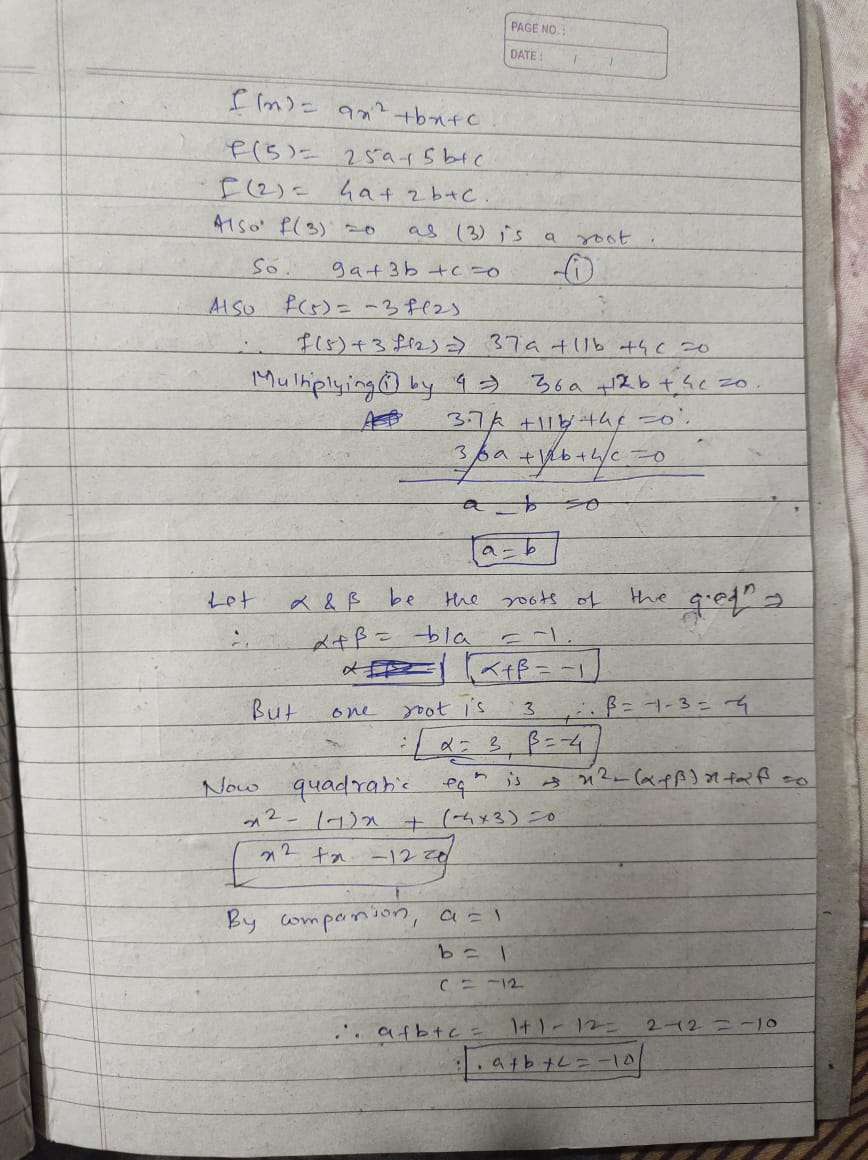 PAGE NO. :
DATE : / /
f(x) = ax² + bx + c.
f(5) = 25a + 5b + c
f(2) = 4a + 2b + c.
Also f(3) = 0 as (3) is a root.
So. 9a + 3b + c = 0 - (i)
Also f(5) = -3f(2)
∴ f(5) + 3f(2) ⇒ 37a + 11b + 4c = 0
Multiplying (i) by 4 ⇒ 36a + 12b + 4c = 0.
37a + 11b + 4c = 0.
36a + 12b + 4c = 0
a - b = 0
a = b
Let α & β be the roots of the q.eqⁿ ⇒
∴ α + β = -b/a = -1.
α + β = -1
But one root is 3, ∴ β = -1 - 3 = -4
∴ α = 3, β = -4
Now quadratic eqⁿ is ⇒ x² - (α + β)x + αβ = 0
x² - (-1)x + (-4 × 3) = 0
x² + x - 12 = 0
By comparison, a = 1
b = 1
c = -12
∴ a + b + c = 1 + 1 - 12 = 2 - 12 = -10
∴ a + b + c = -10